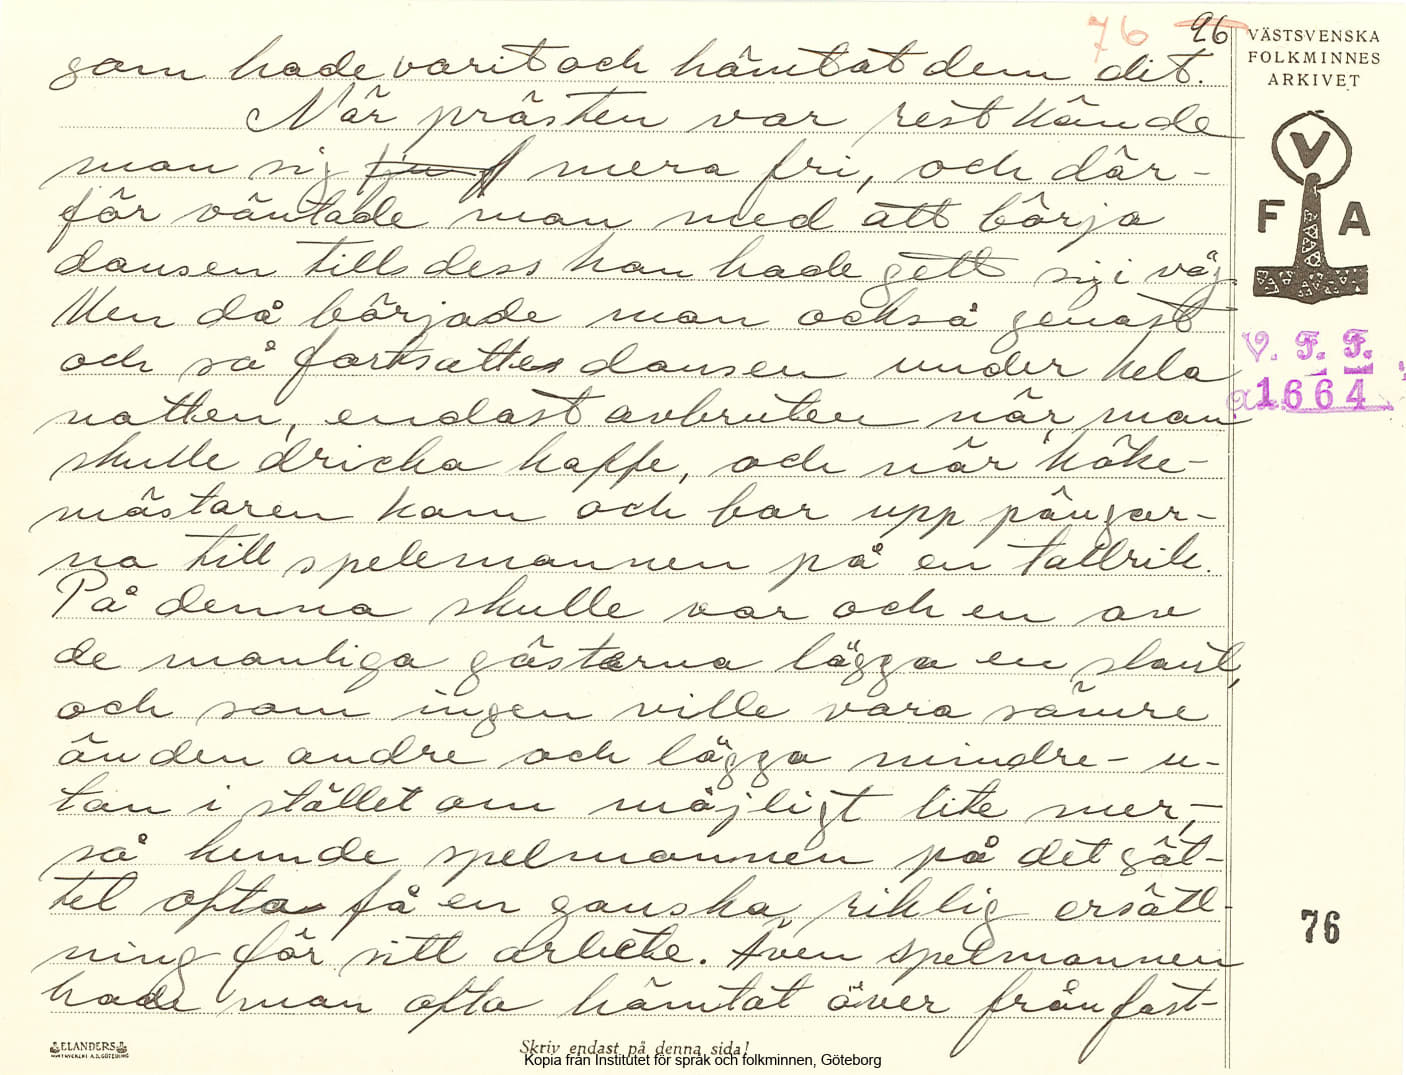 76 96
VÄSTSVENSKA
FOLKMINNES
ARKIVET
V
F A
V. F. F.
1664
som hade varit och hämtat dem dit.
När prästen var rest kände
man sig mera fri, och där-
för väntade man med att börja
dansen tills dess han hade gett sig i väg.
Men då började man också genast
och så fortsattes dansen under hela
natten, endast avbruten när man
skulle dricka kaffe, och när köke-
mästaren kom och bar upp pängar-
na till spelemannen på en tallrik.
På denna skulle var och en av
de manliga gästerna lägga en slant,
och som ingen ville vara sämre
än den andre och lägga mindre - u-
tan i stället om möjligt lite mer, -
så kunde spelmannen på det sät-
tet ofta få en ganska riklig ersätt-
ning för sitt arbete. Även spelmannen
hade man ofta hämtat över från fast-
76
ELANDERS
Skriv endast på denna sida!
Kopia från Institutet för språk och folkminnen, Göteborg